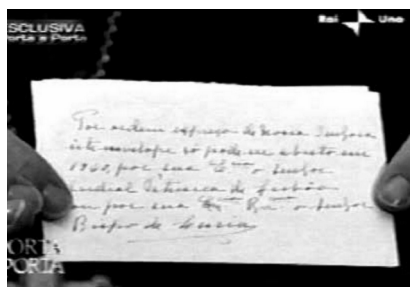 SCLUSIVA
orta a Porta
Rai Uno
Por ordem expreça de Nossa Senhora
este envelope só pode ser aberto em
1960, por sua o Senhor
Cardial Patriarca de Lisboa
ou por sua o Senhor
Bispo de Leiria
PORTA
PORTA